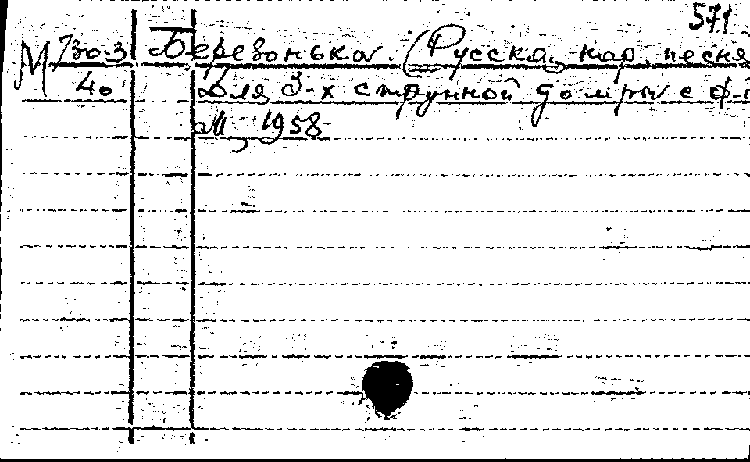 571
М 730.3 Березонька (Русская нар. песня
40 Для 3-х струнной домры с ф-
М, 1958